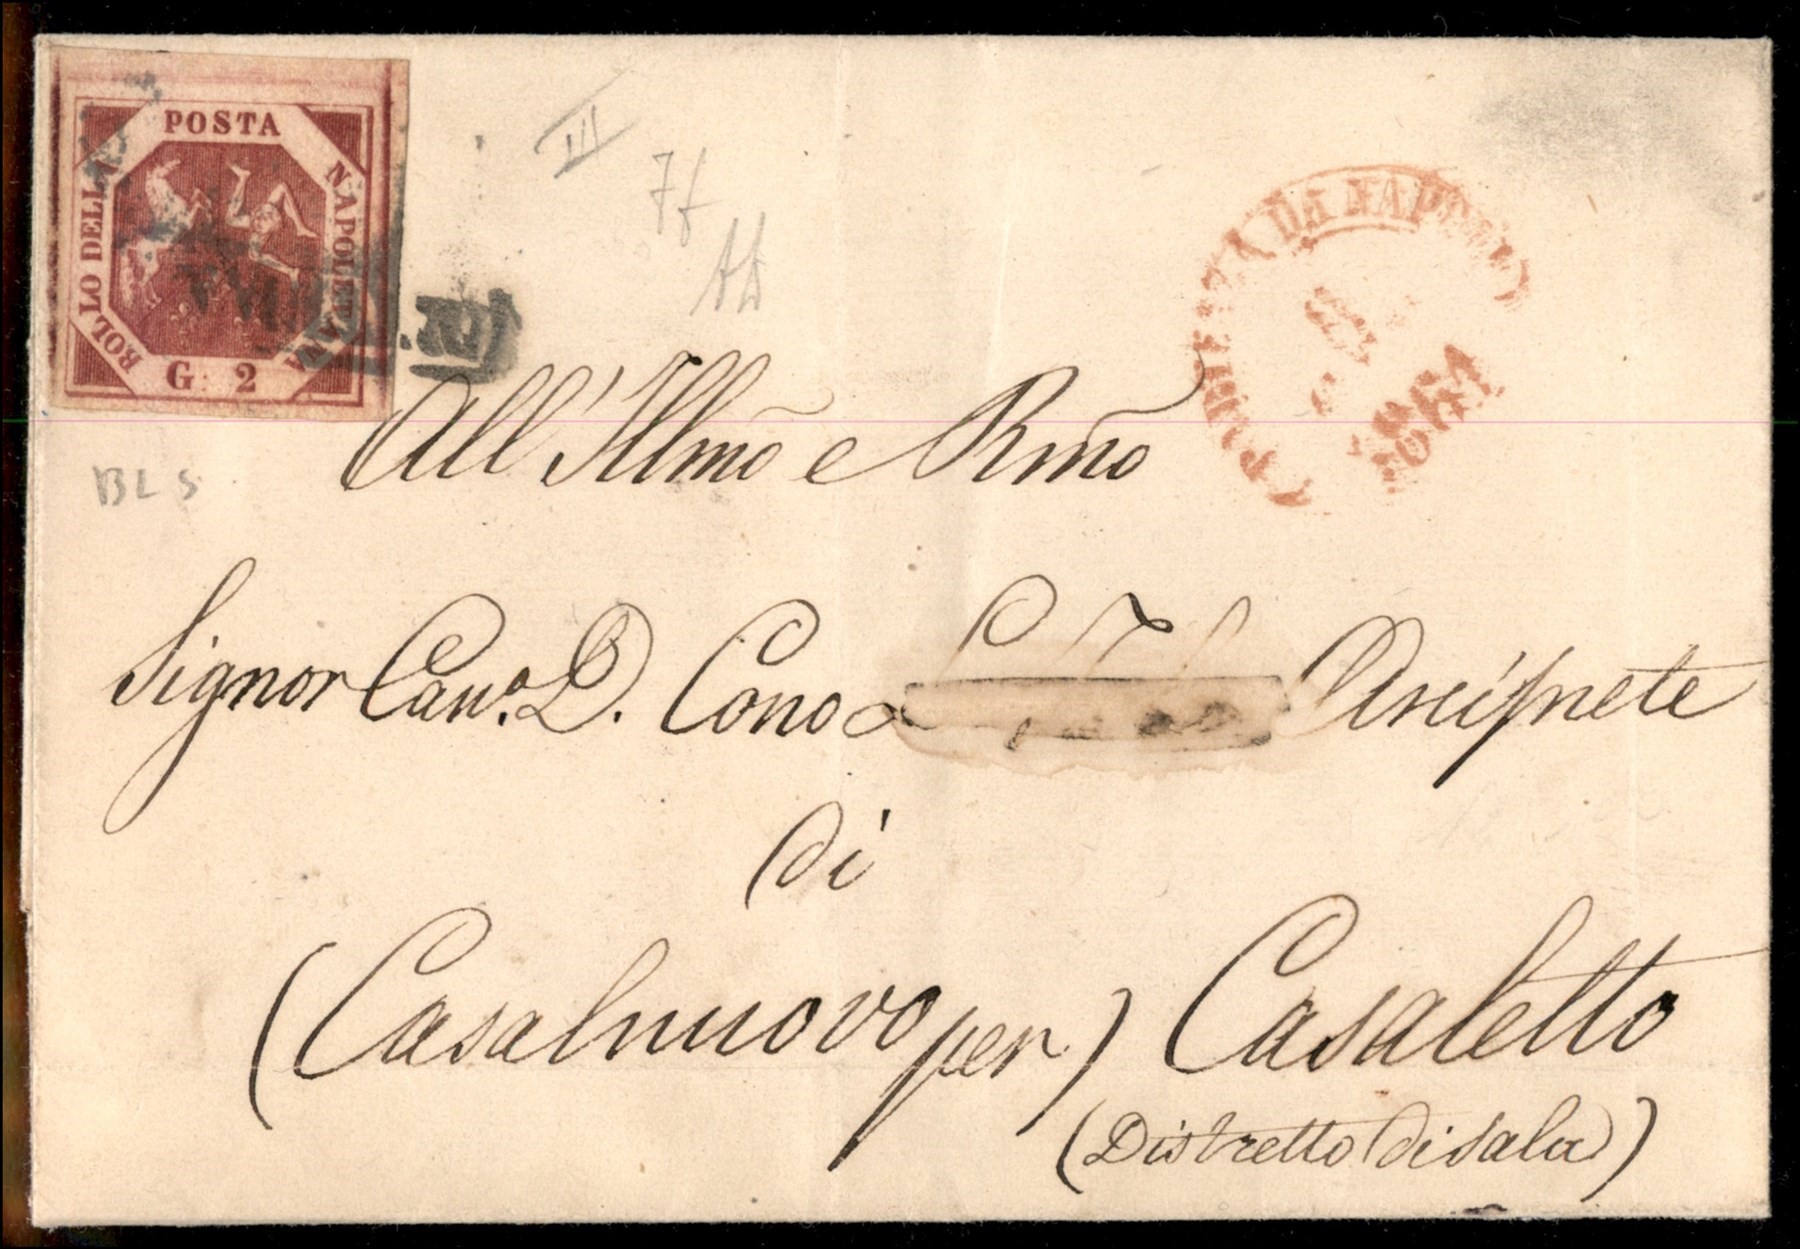 POSTA
NAPOLETANA
BOLLO DELLA
G. 2
III
7f
PARTENZA DA NAPOLI
1861
BLS
All'Illmo e Rmo
Signor Cav.o D. Cono Arciprete
di
(Casalnuovo per) Casaletto
(Distretto di Sala)